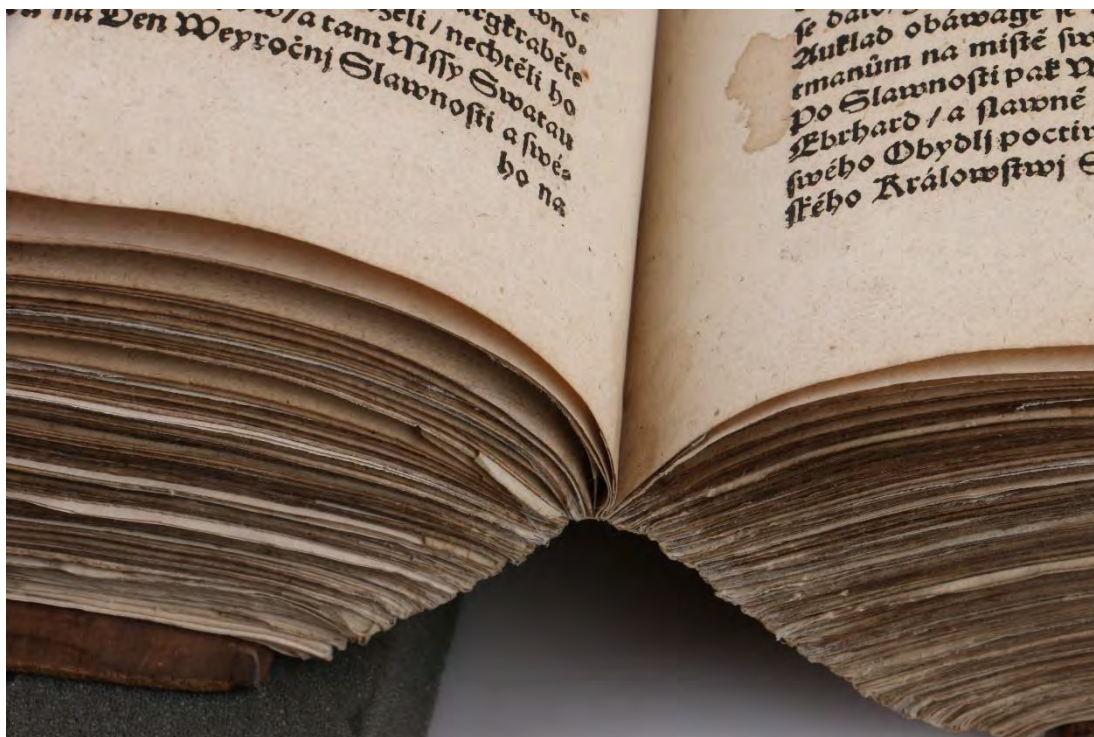 wno⸗
rgkraběte
želi / nechtěli ho
/ a tam Mſſy Swatau
na Den Weyročnj Slawnoſti a ſwé⸗
ho na
ſe dalo
Auklad obáwage ſe
tmanům na miſtě ſw
Po Slawnoſti pak W
Ebrhard / a ſlawně
ſwého Obydlj poctiw
ſkého Králowſtwj S